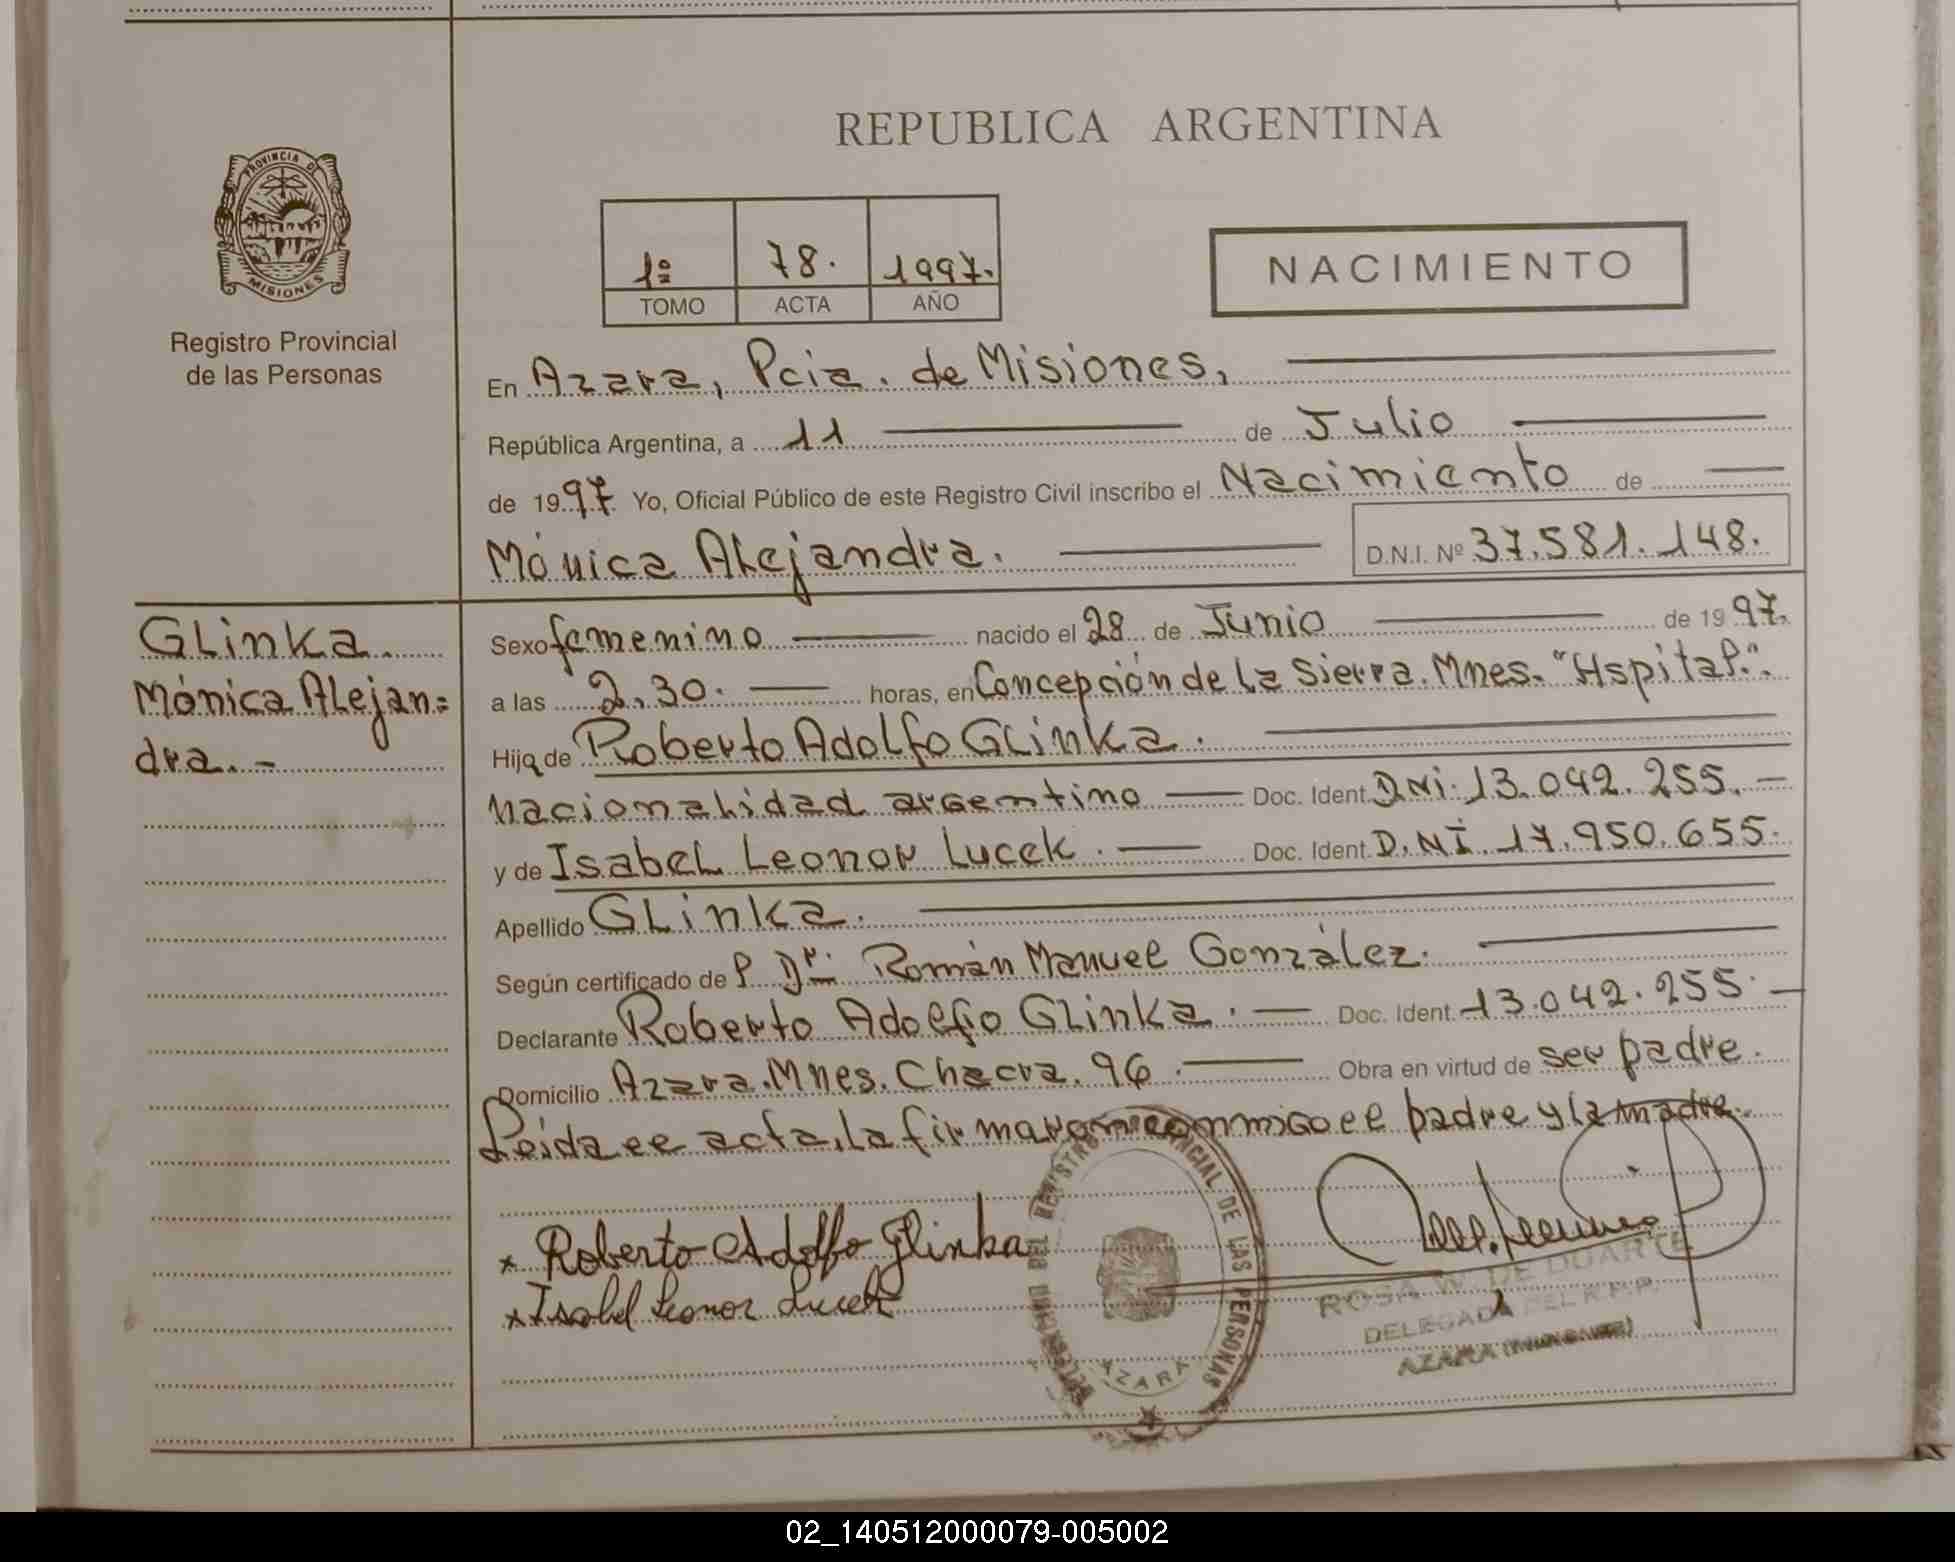 REPUBLICA ARGENTINA
PROVINCIA D
MISIONES
Registro Provincial
de las Personas
1º 78. 1997.
TOMO ACTA AÑO
NACIMIENTO
En Azara, Pcia. de Misiones,
República Argentina, a 11 de Julio
de 1997. Yo, Oficial Público de este Registro Civil inscribo el Nacimiento de
Mónica Alejandra. D.N.I. Nº 37.581.148.
GLinKa.
Mónica Alejan=
dra.-
Sexo femenino nacido el 28 de Junio de 1997.
a las 2,30. horas, en Concepción de la Sierra. Mnes. "Hspital.".
Hija de Roberto Adolfo GLinKa.
nacionalidad argentino Doc. Ident. DNi. 13.042.255.-
y de Isabel Leonor Lucek. Doc. Ident. D.NI. 17.950.655.
Apellido GLinKa.
Según certificado de P Dr. Román Manuel González.
Declarante Roberto Adolfo Glinka. Doc. Ident. 13.042.255.
Domicilio Azara. Mnes. Chacra. 96. Obra en virtud de ser padre.
Leida el acta, la firmaron conmigo el padre y la madre.
* Roberto Adolfo Glinka
* Isabel Leonor Lucek
DELEGACION DEL REGISTRO PROVINCIAL DE LAS PERSONAS
AZARA
ROSA W. DE DUARTE
DELEGADA DEL R.P.P.
AZARA (MISIONES)
02_140512000079-005002